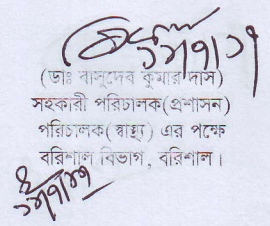 (ডাঃ বাসুদেব কুমার দাস)
সহকারী পরিচালক(প্রশাসন)
পরিচালক(স্বাস্থ্য) এর পক্ষে
বরিশাল বিভাগ, বরিশাল।